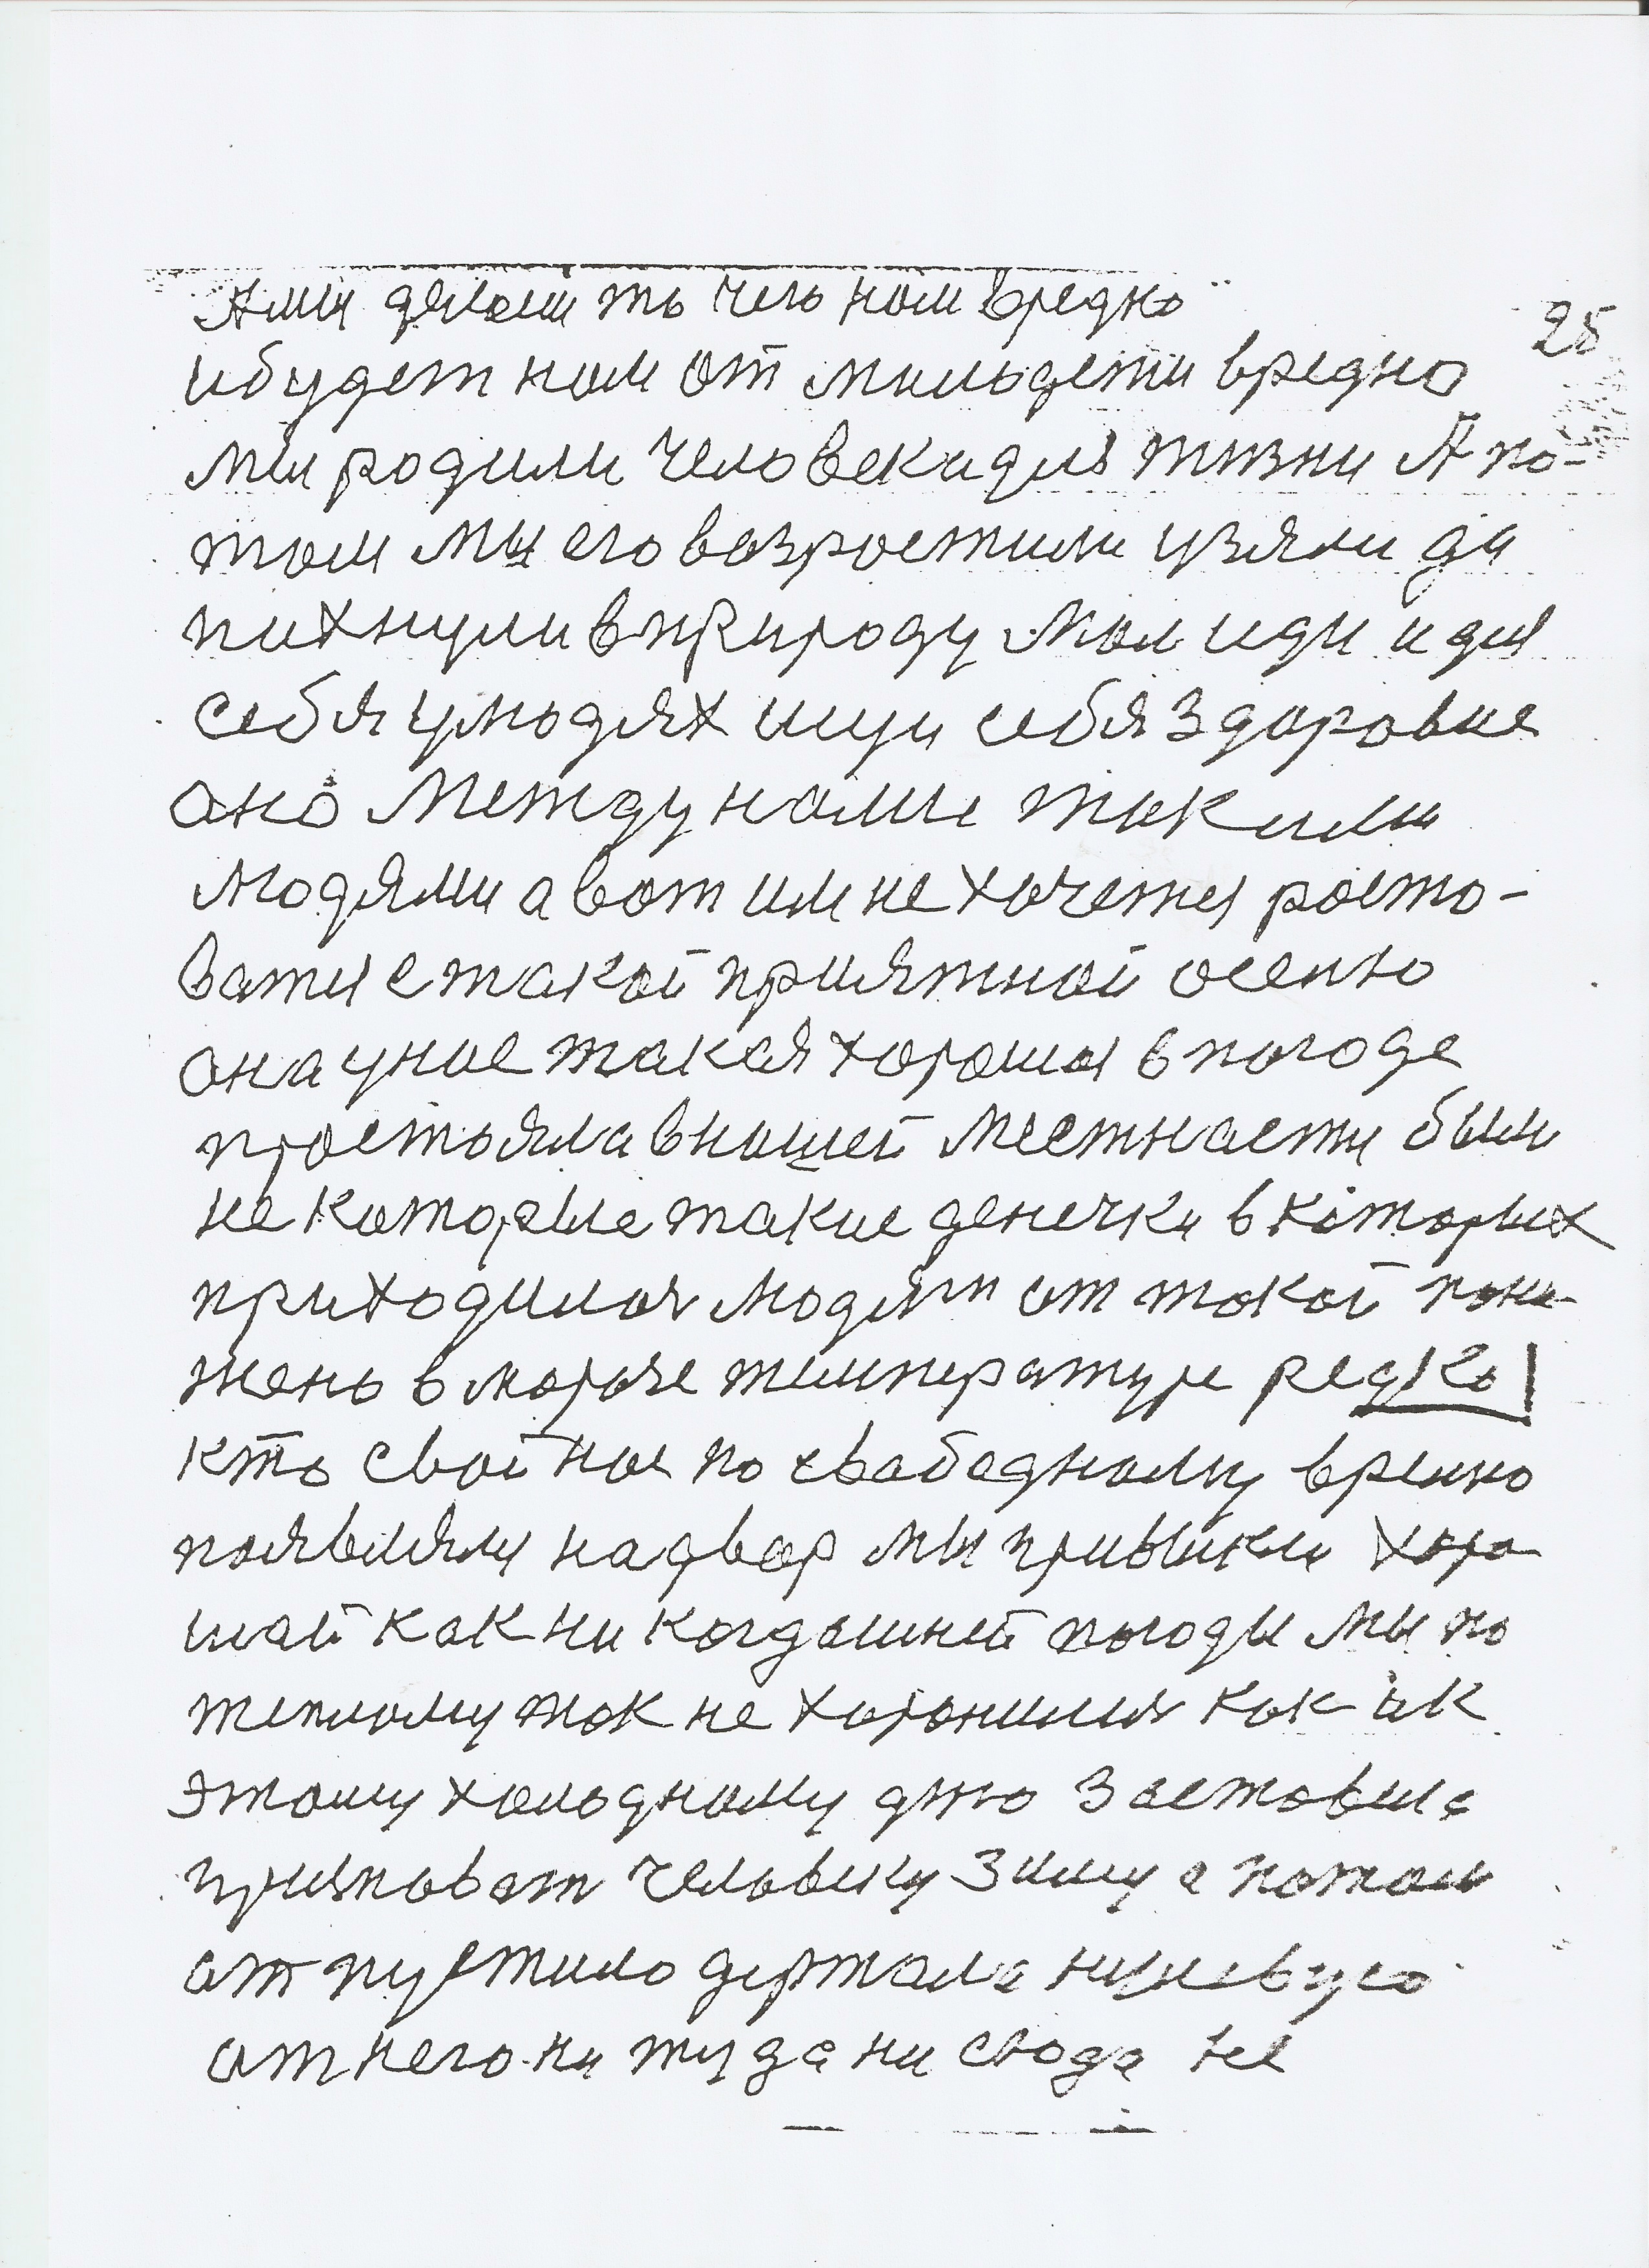 А мы делаем то чего нам вредно
25
и будет нам от молодети вредно
мы родили человека для жизни А по-
том мы его возростили узяли да
пихнули в природу мол иди и для
себя у людях ищи себя здоровие
оно между нами такими
людями а вот им не хочется росто-
ватся с такой приятной осеню
она у нас такая хорошая в погоде
простояла в нашей местности были
не которые такие денечки в которых
приходилося людям от такой пони
жень в мороже температуре редко
кто свой нос по свабодному времю
появляли на двор мы привыкли хоро
шай как ни когдашней погоды мы по
теплому так не хоронился как ак
этому холодному дню заставила
признават человеку зиму а потом
отпустило держала нулевую
от него ни туда ни сюда не